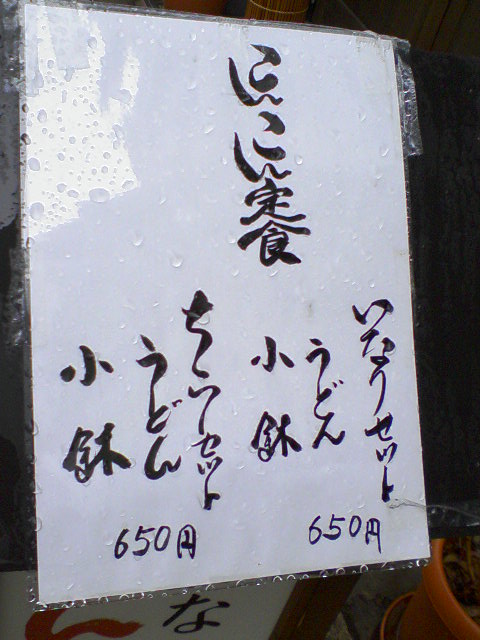 にこにこ定食
いなりセット
うどん
小鉢
650円
ちらしセット
うどん
小鉢
650円
な